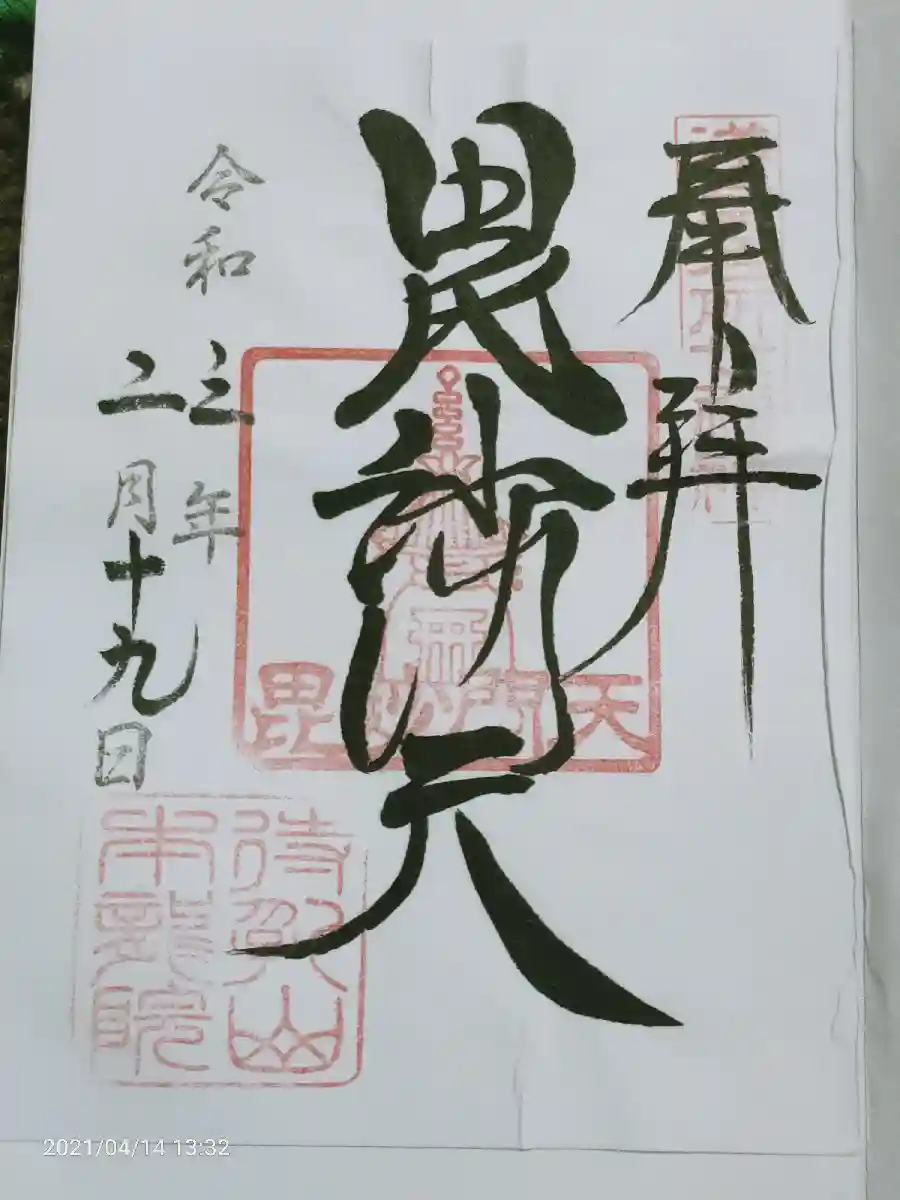 奉拝
毘沙門天
令和三年
二月十九日
毘沙門天
待乳山
本龍院
2021/04/14 13:32